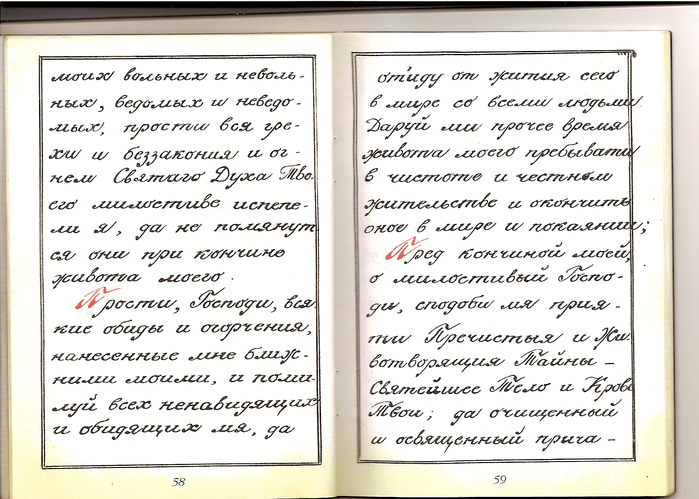 моих вольных и неволь-
ных, ведомых и неведо-
мых, прости вся гре-
хи и беззакония и ог-
нем Святаго Духа Тво-
его милостиве испепе-
ли я, да не помянут
ся они при кончине
живота моего.
Прости, Господи, вся
кие обиды и огорчения,
нанесенные мне ближ-
ними моими, и поми-
луй всех ненавидящих
и обидящих мя, да
58
отиду от жития сего
в мире со всеми людьми.
Даруй ми прочее время
живота моего пребывати
в чистоте и честнем
жительстве и окончить
оное в мире и покаянии;
Пред кончиной моей,
о милостивый Госпо-
ди, сподоби мя прия-
ти Пречистыя и Жи-
вотворящия Тайны –
Святейшее Тело и Кровь
Твои; да очищенный
и освященный прича-
59